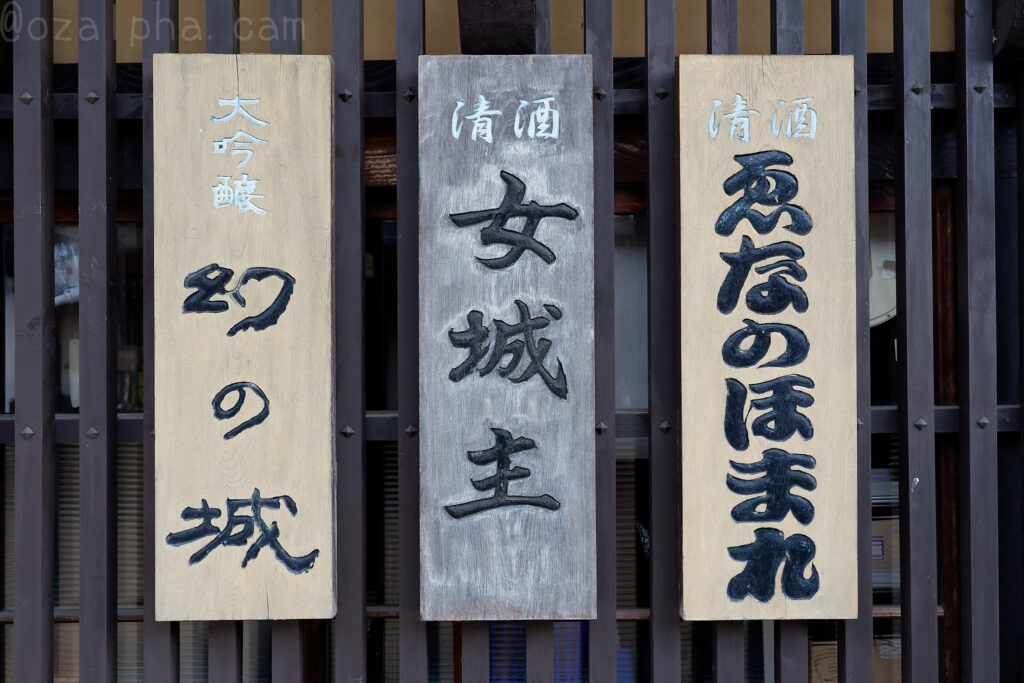 @ozalpha.cam
大吟醸
幻の城
清酒
女城主
清酒
ゑなのほまれ